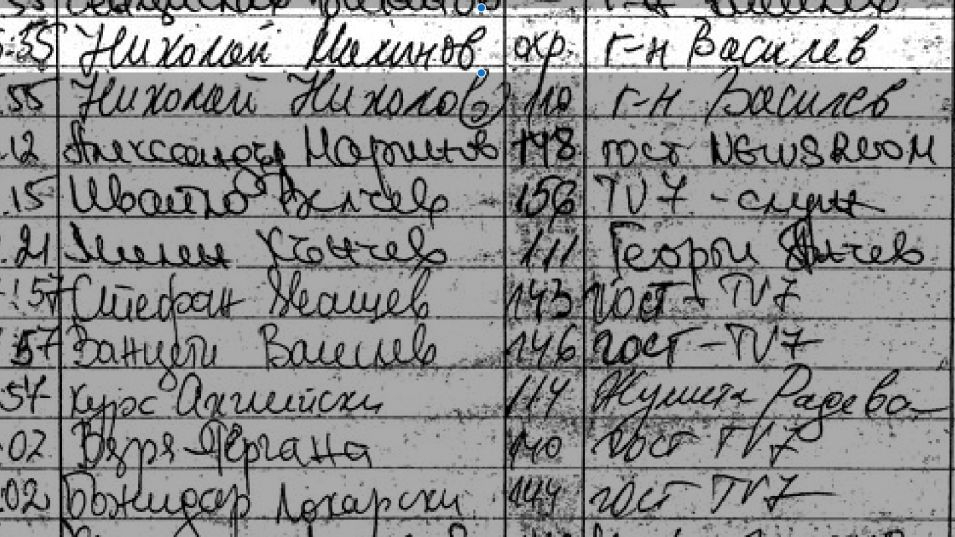 :55 Николай Малинов охр. г-н Василев
55 Николай Николов 110 г-н Василев
12 Александър Мартинов 148 гост NEWSROOM
15 Ивайло 156 TV7 - служ
21 Милен Кънчев 111 Георги Янчев
:57 Стефан 143 гост - TV7
57 Василев 146 гост - TV7
57 курс Английски 114 Радева
02 Гергана 140 гост TV7
02 Божидар Лукарски 144 гост TV7